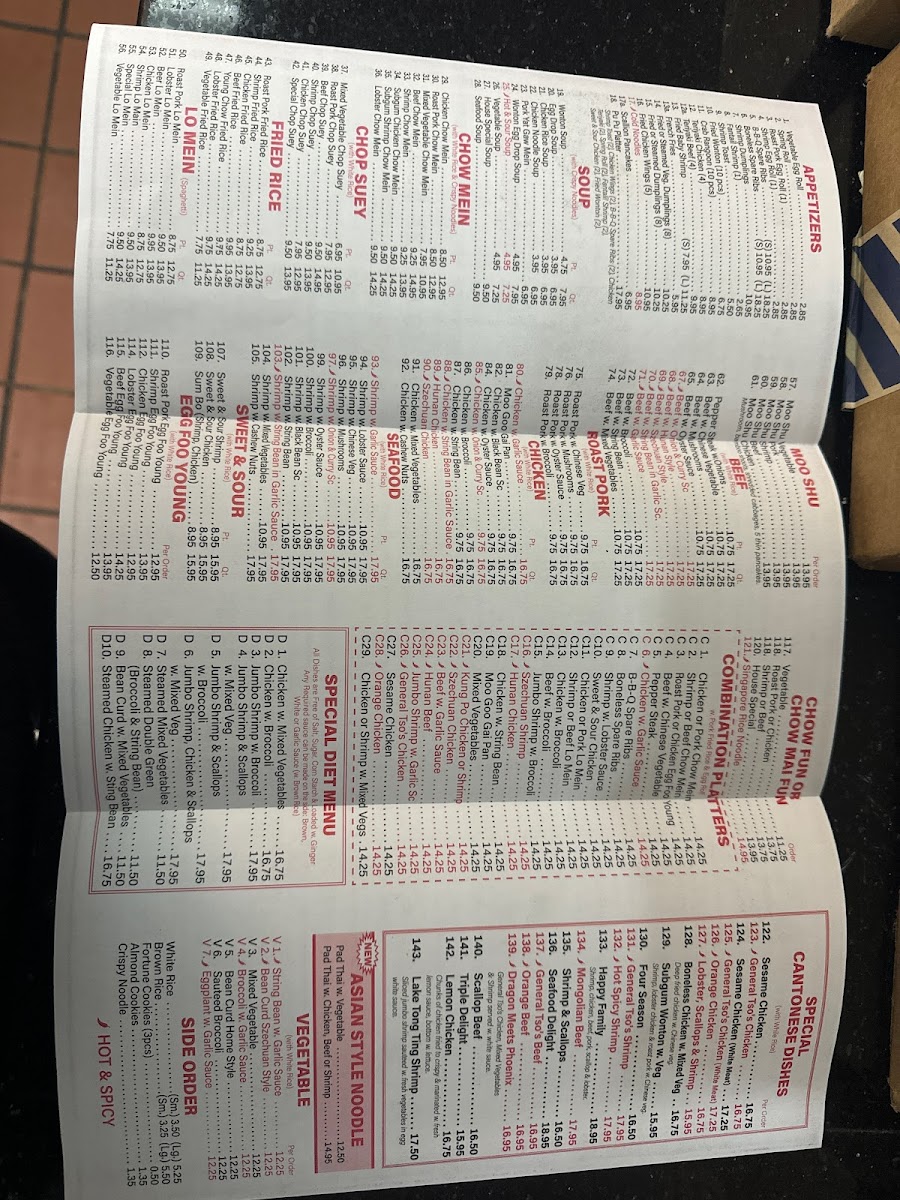 APPETIZERS
1. Vegetable Egg Roll 2.85
Spring Roll 2.85
Pork Egg Roll (1) 2.85
Shrimp Egg Roll (1) 2.85
Bar-B-Q Spare Ribs (S) 10.95 (L) 18.25
Boneless Spare Ribs (S) 10.95 (L) 18.25
Shrimp Dumplings 10.95
Fantail Shrimp (1) 2.65
Shrimp Toast 5.50
Fried Wonton (10 pcs) 6.75
Crab Rangoon (10 pcs) 8.95
Teriyaki Chicken (4) 8.95
Teriyaki Beef (4) 9.95
Fried Baby Shrimp (S) 7.95 (L) 11.25
French Fries 5.95
Fried or Steamed Veg. Dumplings (8) 10.25
Fried or Steamed Dumplings (8) 10.25
Fried Chicken Wings (5) 10.95
17. Cold Noodles 8.95
17a. Scallion Pancakes 6.95
18. Pu Pu Platter 17.95
SOUP (w. Crispy Noodles)
Pt. Qt.
19. Wonton Soup 4.75 7.95
20. Egg Drop Soup 3.95 6.95
21. Chicken Rice Soup 3.95 6.95
22. Chicken Noodle Soup 3.95 6.95
23. Pork Yat Gaw Mein 6.95
24. Wonton Egg Drop Soup 4.95 7.95
25. Hot & Sour Soup 4.95 7.25
26. Vegetable Soup 4.95 7.25
27. House Special Soup 9.50
28. Seafood Soup 9.50
CHOW MEIN
(with White Rice & Crispy Noodles)
Pt. Qt.
29. Chicken Chow Mein 8.50 12.95
30. Roast Pork Chow Mein 8.50 12.95
31. Mixed Vegetable Chow Mein 7.95 10.95
32. Beef Chow Mein 9.25 14.95
33. Shrimp Chow Mein 9.25 13.95
34. Subgum Chicken Chow Mein 9.50 14.25
35. Subgum Shrimp Chow Mein 9.50 14.25
36. Lobster Chow Mein 9.50 14.25
CHOP SUEY
(with White Rice)
Pt. Qt.
37. Mixed Vegetable Chop Suey 6.95 10.95
38. Roast Pork Chop Suey 7.95 12.95
39. Beef Chop Suey 9.50 14.25
40. Shrimp Chop Suey 9.50 14.25
41. Chicken Chop Suey 7.95 12.95
42. Special Chop Suey 9.50 13.95
FRIED RICE
Pt. Qt.
43. Roast Pork Fried Rice 8.75 12.75
44. Shrimp Fried Rice 9.25 13.95
45. Chicken Fried Rice 8.75 12.75
46. Beef Fried Rice 8.75 13.25
47. Young Chow Fried Rice 9.95 13.95
48. Lobster Fried Rice 9.75 14.25
49. Vegetable Fried Rice 7.75 11.25
LO MEIN (Spaghetti)
Pt. Qt.
50. Roast Pork Lo Mein 8.75 12.75
51. Lobster Lo Mein 9.50 14.25
52. Beer Lo Mein 9.50 13.95
53. Chicken Lo Mein 8.75 12.75
54. Shrimp Lo Mein 9.50 13.95
55. Special Lo Mein 9.50 14.25
56. Vegetable Lo Mein 7.75 11.25
MOO SHU
Per Order
57. Moo Shu Vegetable 13.95
58. Moo Shu 13.95
59. Moo Shu 13.95
60. Moo Shu 13.95
61. Moo Shu 13.95
BEEF
(w. White Rice)
Pt. Qt.
62. Pepper w. Onions 10.75 17.25
63. Beef w. Vegetable 10.75 17.25
64. Beef w. Mushrooms 10.75 17.25
67. Beef w. Curry Sc. 10.75 17.25
70. Beef w. Garlic Sc. 10.75 17.25
71. Beef w. String Bean in Garlic Sauce 17.25
72. Beef w. Broccoli 10.75 17.25
73. Beef w. String Bean 10.75 17.25
74. Beef w. Mixed Vegetables 10.75 17.25
ROAST PORK
(w. White Rice)
Pt. Qt.
75. Roast Pork w. Chinese Veg 9.75 16.75
76. Roast Pork w. Mushrooms 9.75 16.75
78. Roast Pork w. Oyster Sauce 9.75 16.75
79. Roast Pork w. Broccoli 9.75 16.75
CHICKEN
(w. White Rice)
Pt. Qt.
80. Chicken w. Garlic Sauce 9.75 16.75
81. Moo Goo Gai Pan 9.75 16.75
82. Chicken w. Black Bean Sc 9.75 16.75
84. Chicken w. Oyster Sauce 9.75 16.75
85. Chicken w. Onion & Curry Sc 9.75 16.75
86. Chicken w. Broccoli 9.75 16.75
87. Chicken w. String Bean 9.75 16.75
88. Chicken w. String Bean in Garlic Sauce 16.75
89. Hunan Chicken 16.75
90. Szechuan Chicken 16.75
91. Chicken w. Mixed Vegetables 9.75 16.75
92. Chicken w. Cashew Nuts 16.75
SEAFOOD
(w. White Rice)
Pt. Qt.
93. Shrimp w. Garlic Sauce 10.95 17.95
94. Shrimp w. Lobster Sauce 10.95 17.95
95. Shrimp w. Chinese Veg 10.95 17.95
96. Shrimp w. Mushrooms 10.95 17.95
97. Shrimp w. Onion & Curry Sc 10.95 17.95
99. Shrimp w. Oyster Sauce 10.95 17.95
100. Shrimp w. Broccoli 10.95 17.95
101. Shrimp w. Black Bean Sc 10.95 17.95
102. Shrimp w. String Bean 10.95 17.95
103. Shrimp w. String Bean in Garlic Sauce 17.95
104. Shrimp w. Mixed Vegetables 10.95 17.95
105. Shrimp w. Cashew Nuts 17.95
SWEET & SOUR
(with White Rice)
Pt. Qt.
107. Sweet & Sour Shrimp 8.95 15.95
108. Sweet & Sour Chicken 8.95 15.95
109. Sum Bo (Shrimp, Chicken) 8.95 15.95
EGG FOO YOUNG
(with White Rice)
Per Order
110. Roast Pork Egg Foo Young 12.95
111. Shrimp Egg Foo Young 13.95
112. Chicken Egg Foo Young 13.95
114. Lobster Egg Foo Young 12.95
115. Beef Egg Foo Young 14.25
116. Vegetable Egg Foo Young 13.95
12.50
CHOW FUN OR
CHOW MAI FUN
Order
117. Vegetable 11.25
118. Roast Pork or Chicken 13.75
118. Shrimp or Beef 13.75
120. House Special 13.95
121. Singapore Rice Noodle 14.95
COMBINATION PLATTERS
w. Pork Fried Rice & Egg Roll
C 1. Chicken or Pork Chow Mein 14.25
C 2. Shrimp or Beef Chow Mein 14.25
C 3. Roast Pork or Chicken Egg Foo young 14.25
C 4. Beef w. Chinese Vegetable 14.25
C 5. Pepper Steak 14.25
C 6. Chicken w. Garlic Sauce 14.25
C 7. B-B-Q Spare Ribs 14.25
C 8. Boneless Spare Ribs 14.25
C 9. Shrimp w. Lobster Sauce 14.25
C10. Sweet & Sour Chicken 14.25
C11. Chicken or Pork Lo Mein 14.25
C12. Shrimp or Beef Lo Mein 14.25
C13. Chicken w. Broccoli 14.25
C14. Beef w. Broccoli 14.25
C15. Jumbo Shrimp w. Broccoli 14.25
C16. Szechuan Shrimp 14.25
C17. Hunan Chicken 14.25
C18. Chicken w. String Bean 14.25
C19. Moo Goo Gai Pan 14.25
C20. Mixed Vegetables 14.25
C21. Kung Po Chicken or Shrimp 14.25
C22. Szechuan Chicken 14.25
C23. Beef w. Garlic Sauce 14.25
C24. Hunan Beef 14.25
C25. Jumbo Shrimp w. Garlic Sc 14.25
C26. General Tso's Chicken 14.25
C27. Sesame Chicken 14.25
C28. Orange Chicken 14.25
C29. Chicken or Shrimp w. Mixed Vegs 14.25
SPECIAL DIET MENU
All Dishes are Free of Salt, Sugar, Corn Starch & Loaded w. Ginger
Any Required sauce can be made on the side: Brown,
White or Garlic Sauce (w. Brown Rice)
D 1. Chicken w. Mixed Vegetables 16.75
D 2. Chicken w. Broccoli 16.75
D 3. Jumbo Shrimp w. Broccoli 17.95
D 4. Jumbo Shrimp & Scallops
w. Mixed Veg 17.95
D 5. Jumbo Shrimp & Scallops
w. Broccoli 17.95
D 6. Jumbo Shrimp, Chicken & Scallops
w. Mixed Veg 17.95
D 7. Steamed Mixed Vegetables 11.50
D 8. Steamed Double Green
(Broccoli & String Bean) 11.50
D 9. Bean Curd w. Mixed Vegetables 11.50
D10. Steamed Chicken w. String Bean 16.75
SPECIAL
CANTONESE DISHES
(with White Rice)
Per Order
122. Sesame Chicken 16.75
123. General Tso's Chicken 16.75
124. Sesame Chicken (White Meat) 17.25
125. General Tso's Chicken (White Meat) 17.25
126. Orange Chicken 16.75
127. Lobster, Scallops & Shrimp 16.75
128. Boneless Chicken w. Mixed Veg 15.95
Deep fried chicken & Chinese veg.
129. Subgum Wonton w. Veg 16.75
Shrimp, lobster, chicken & roast pork w. Chinese veg.
130. Four Season 15.95
131. General Tso's Shrimp 16.50
132. Hot Spicy Shrimp 17.95
133. Happy Family 17.95
Shrimp, chicken, beef, pork, scallop & lobster.
134. Mongolian Beef 18.95
135. Shrimp & Scallops 17.95
136. Seafood Delight 16.50
137. General Tso's Beef 18.95
138. Orange Beef 16.95
139. Dragon Meets Phoenix 16.95
General Tso's Chicken, Mixed Vegetables
& Shrimp served w. white sauce.
140. Scallion Beef 16.95
141. Triple Delight 16.50
142. Lemon Chicken 15.95
Chunks of chicken fried to crispy & marinated w. fresh
lemon sauce, bottom w. lettuce. 16.75
143. Lake Tong Ting Shrimp 17.50
Sliced jumbo shrimp sautéed w. fresh vegetables in egg
white sauce.
NEW
ASIAN STYLE NOODLE
Pad Thai w. Vegetable 12.50
Pad Thai w. Chicken, Beef or Shrimp 14.95
VEGETABLE
(with White Rice)
Per Order
V 1. String Bean w. Garlic Sauce 12.25
V 2. Bean Curd Szechuan Style 12.25
V 3. Mixed Vegetable 12.25
V 4. Broccoli w. Garlic Sauce 12.25
V 5. Bean Curd Home Style 12.25
V 6. Sauteed Broccoli 12.25
V 7. Eggplant w. Garlic Sauce 12.25
SIDE ORDER
White Rice (Sm.) 3.50 (Lg.) 5.25
Brown Rice (Sm.) 3.25 (Lg.) 5.50
Fortune Cookies (3pcs) 0.50
Almond Cookies 1.35
Crispy Noodle 1.35
HOT & SPICY